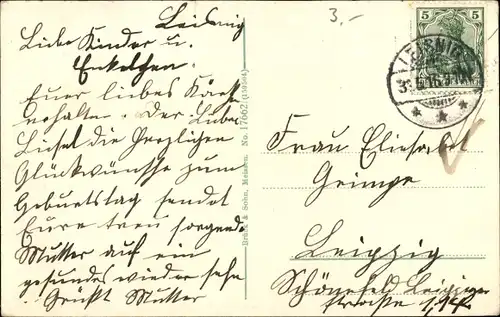 3.-
Leisnig
Liebe Kinder u.
Enkelchen.
Euer liebes Karte
erhalten. Der Liebe
Lisbet die Herzlichen
Glückwünsche zum
Geburtstag sendet
Eure treu sorgende
Mutter auf ein
gesundes wieder sehn
Grüßt Mutter
Brück & Sohn, Meissen. No. 17662 (1914)
5 5
LEISNIG
Frau Eliesabet
Grimpe
Leipzig
Schönefeld Leipziger
strasse